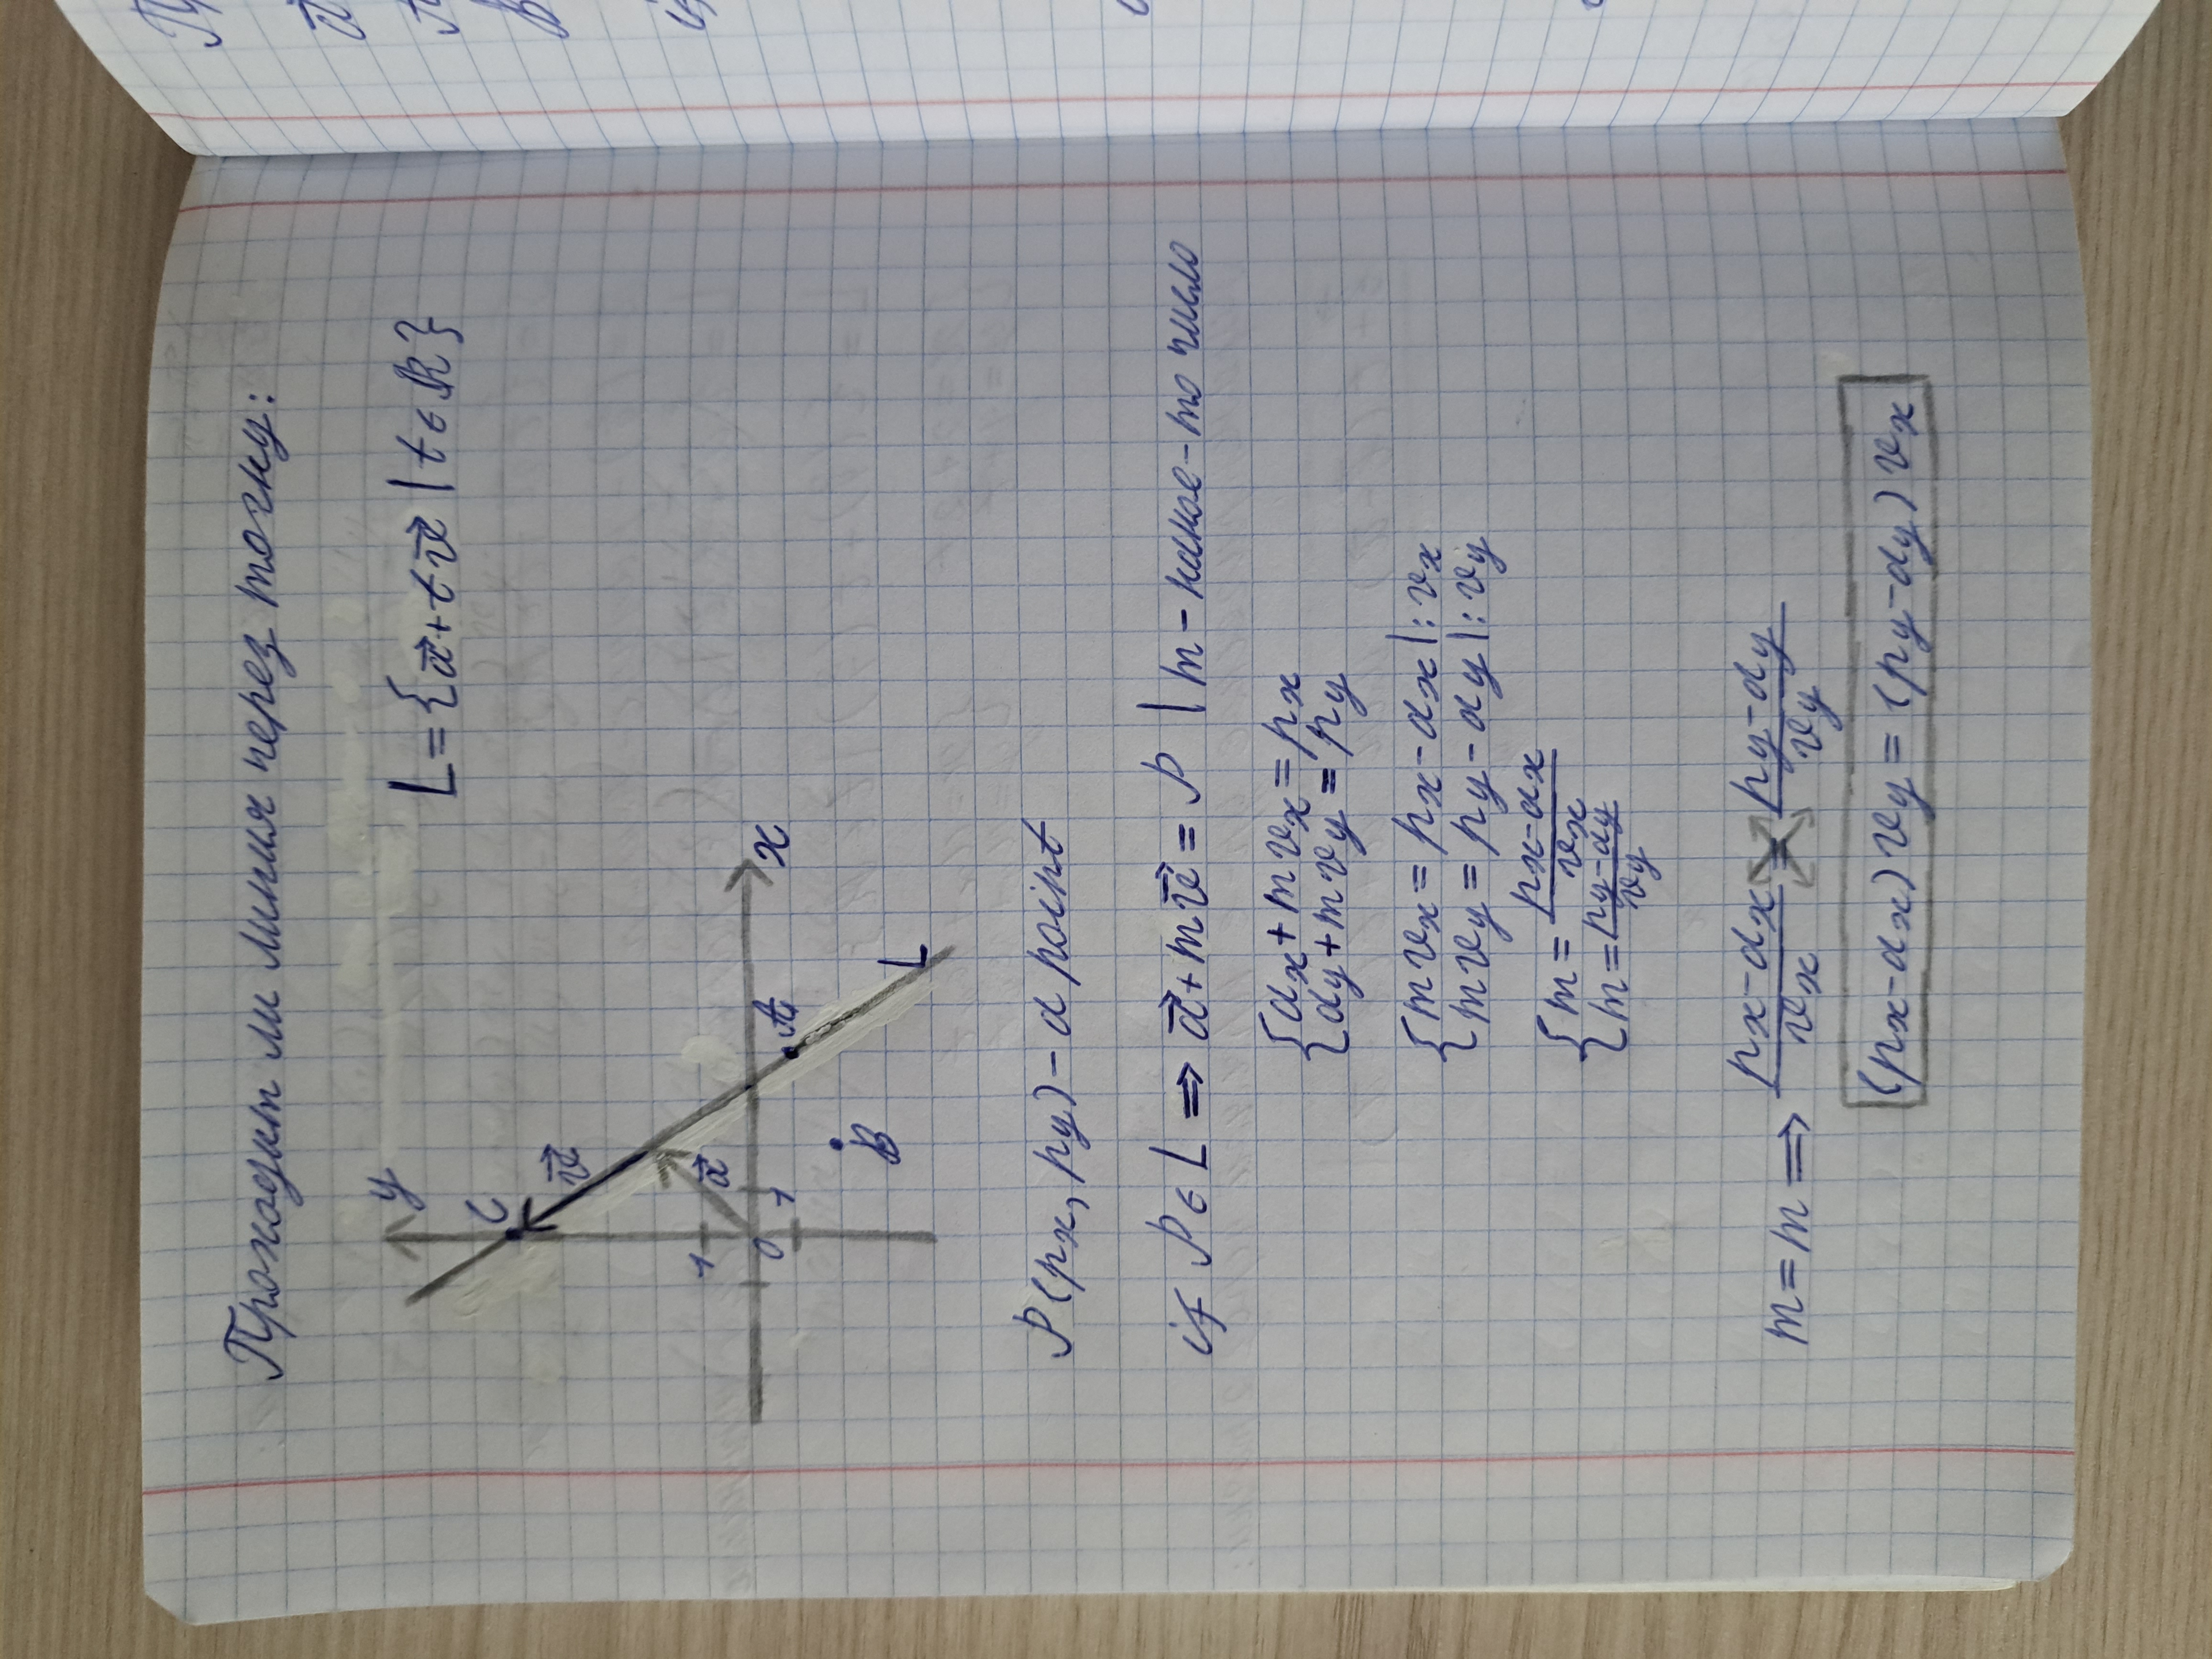 Проходит ли линия через точку:
y
L = {a⃗ + t v⃗ | t ∈ ℝ}
C
v⃗
1
a⃗
0
1
A
x
B
L
P(px, py) – a point
if P ∈ L ⟹ a⃗ + m v⃗ = P | m – какое-то число
{ax + m vx = px
{ay + m vy = py
{m vx = px – ax | : vx
{m vy = py – ay | : vy
{m = (px – ax)/vx
{m = (py – ay)/vy
m = m ⟹ (px – ax)/vx = (py – ay)/vy
(px – ax) vy = (py – ay) vx